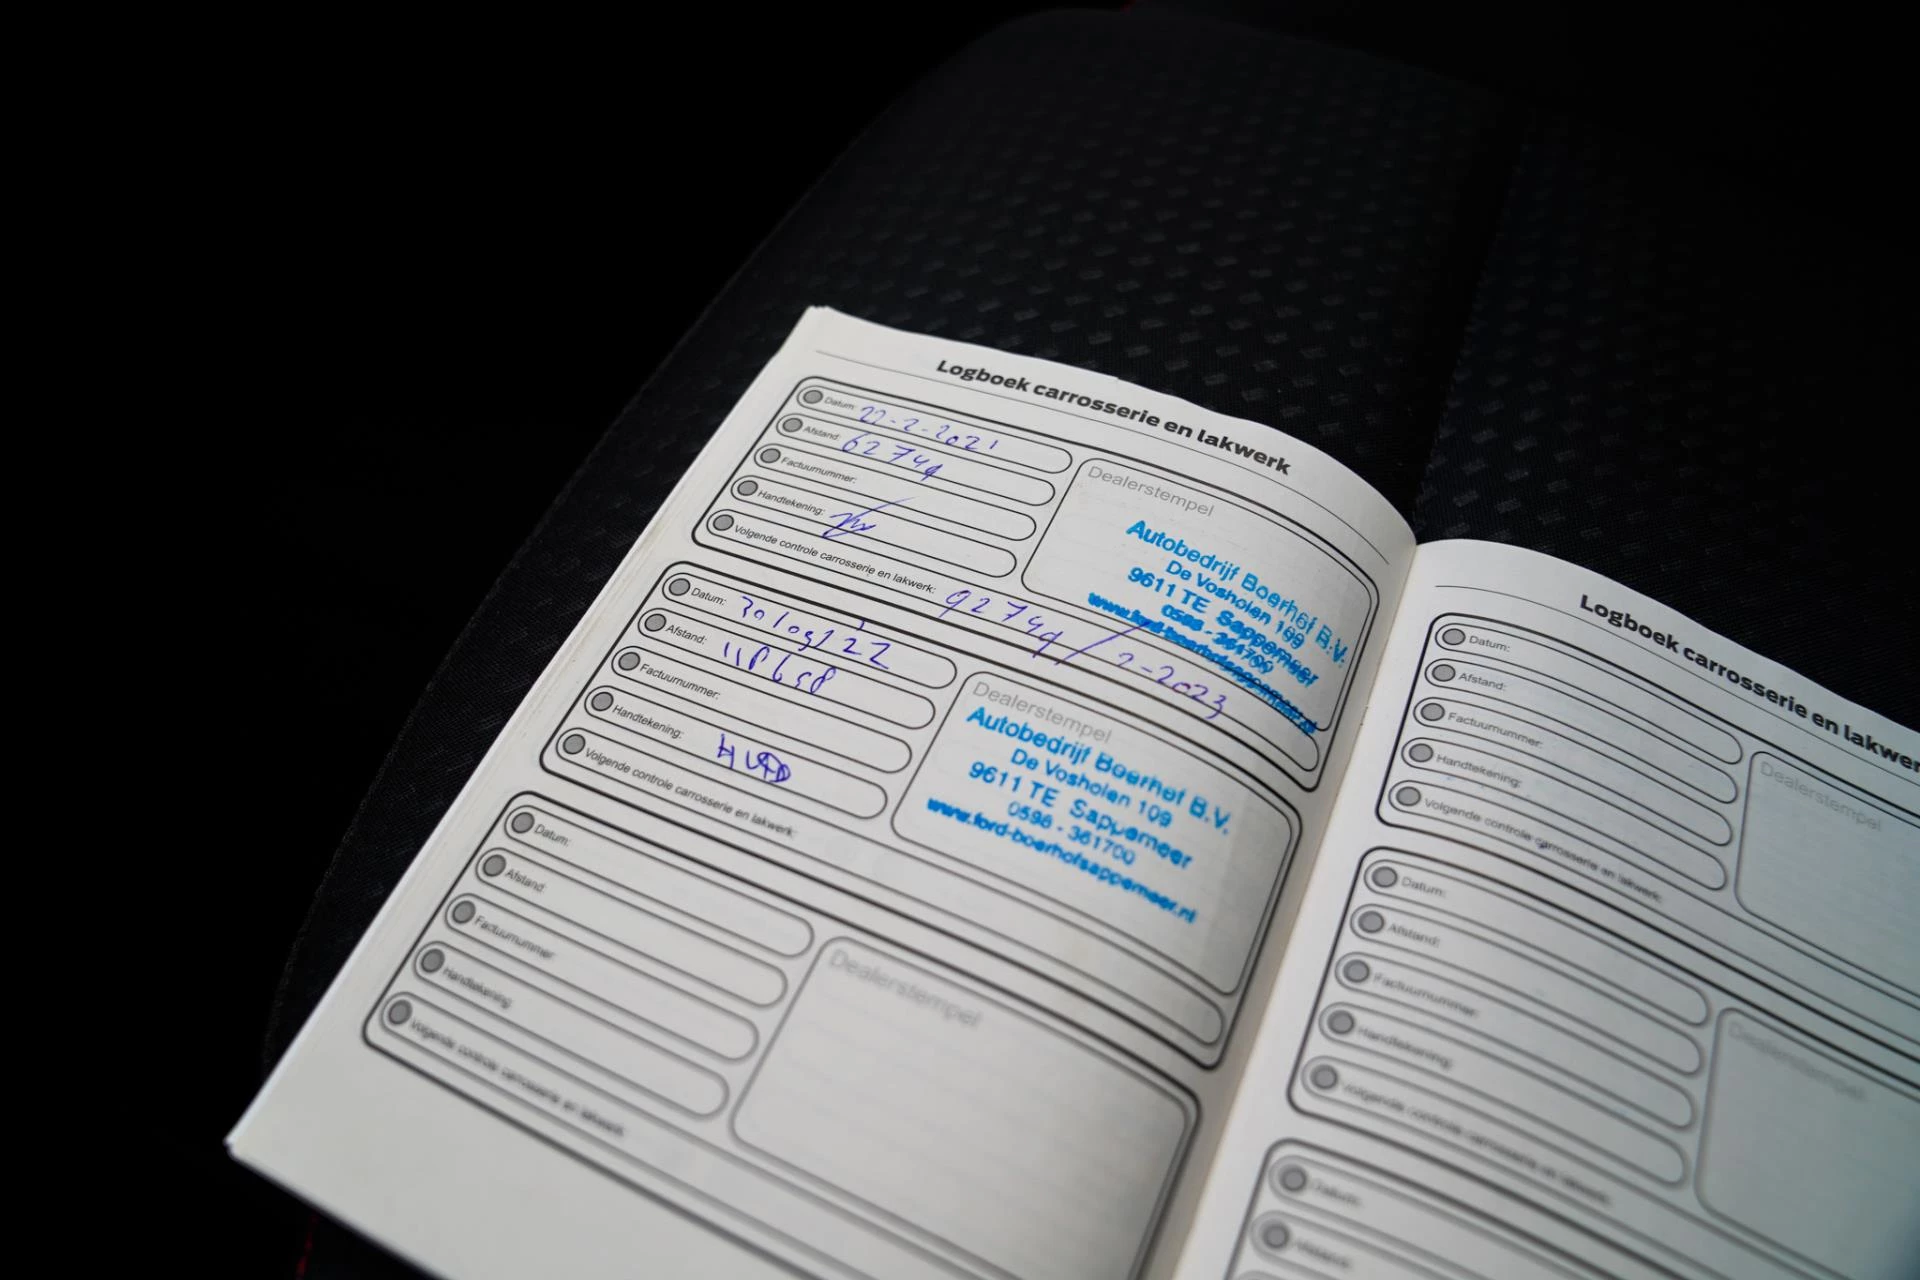 Logboek carrosserie en lakwerk
Datum: 22-2-2021
Afstand: 62749
Factuurnummer:
Handtekening:
Volgende controle carrosserie en lakwerk: 92749 / 2-2023
Dealerstempel
Autobedrijf Boerhof B.V.
De Vosholen 109
9611 TE Sappemeer
0598 - 361700
www.ford-boerhofsappemeer.nl
Datum: 30/09/22
Afstand: 118698
Factuurnummer:
Handtekening:
Volgende controle carrosserie en lakwerk:
Dealerstempel
Autobedrijf Boerhof B.V.
De Vosholen 109
9611 TE Sappemeer
0598 - 361700
www.ford-boerhofsappemeer.nl
Datum:
Afstand:
Factuurnummer
Handtekening
Volgende controle carrosserie en lakwerk
Dealerstempel
Logboek carrosserie en lakwer
Datum:
Afstand:
Factuurnummer:
Handtekening:
Volgende controle carrosserie en lakwerk:
Dealerstempel
Datum:
Afstand:
Factuurnummer:
Handtekening:
Volgende controle carrosserie en lakwerk:
Dealerstempel
Datum:
Afstand: